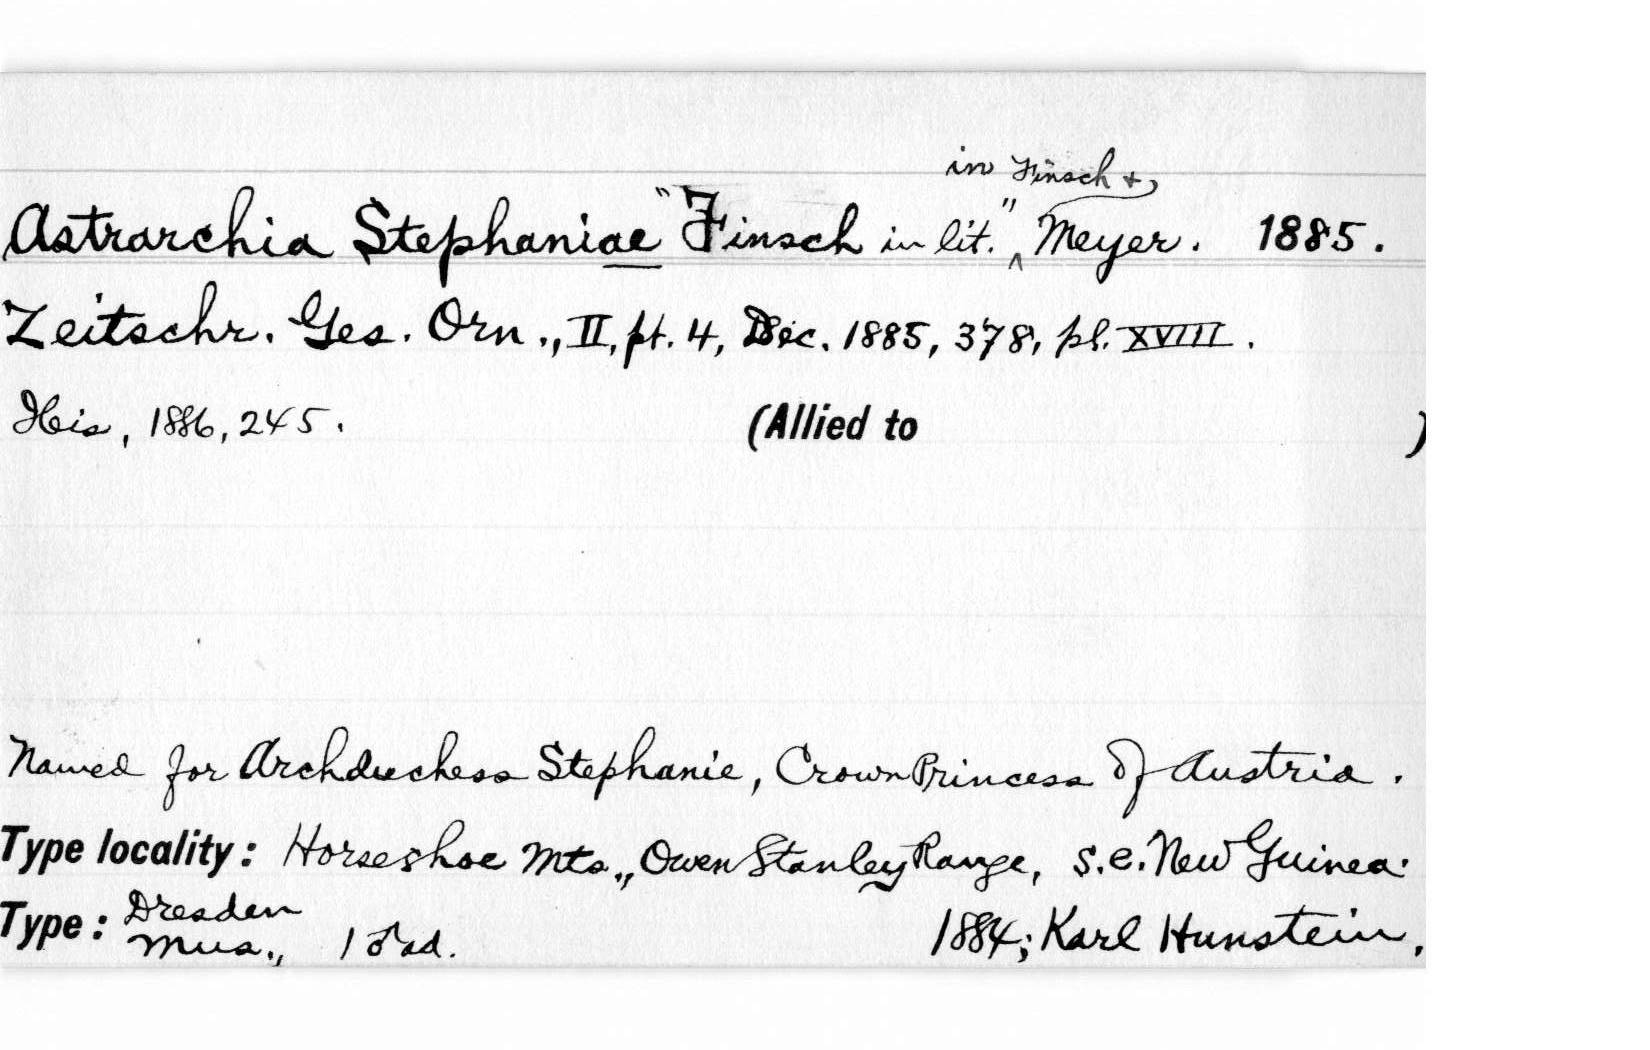 in Finsch &
Astrarchia Stephaniae "Finsch in lit." ^ Meyer. 1885.
Zeitschr. Ges. Orn., II, pt. 4, Dec. 1885, 378, pl. XVIII.
Ibis, 1886, 245. (Allied to )
Named for Archduchess Stephanie, Crown Princess of Austria.
Type locality: Horseshoe Mts., Owen Stanley Range, s.e. New Guinea.
Type: Dresden Mus., 1 ♂ ad. 1884; Karl Hunstein,